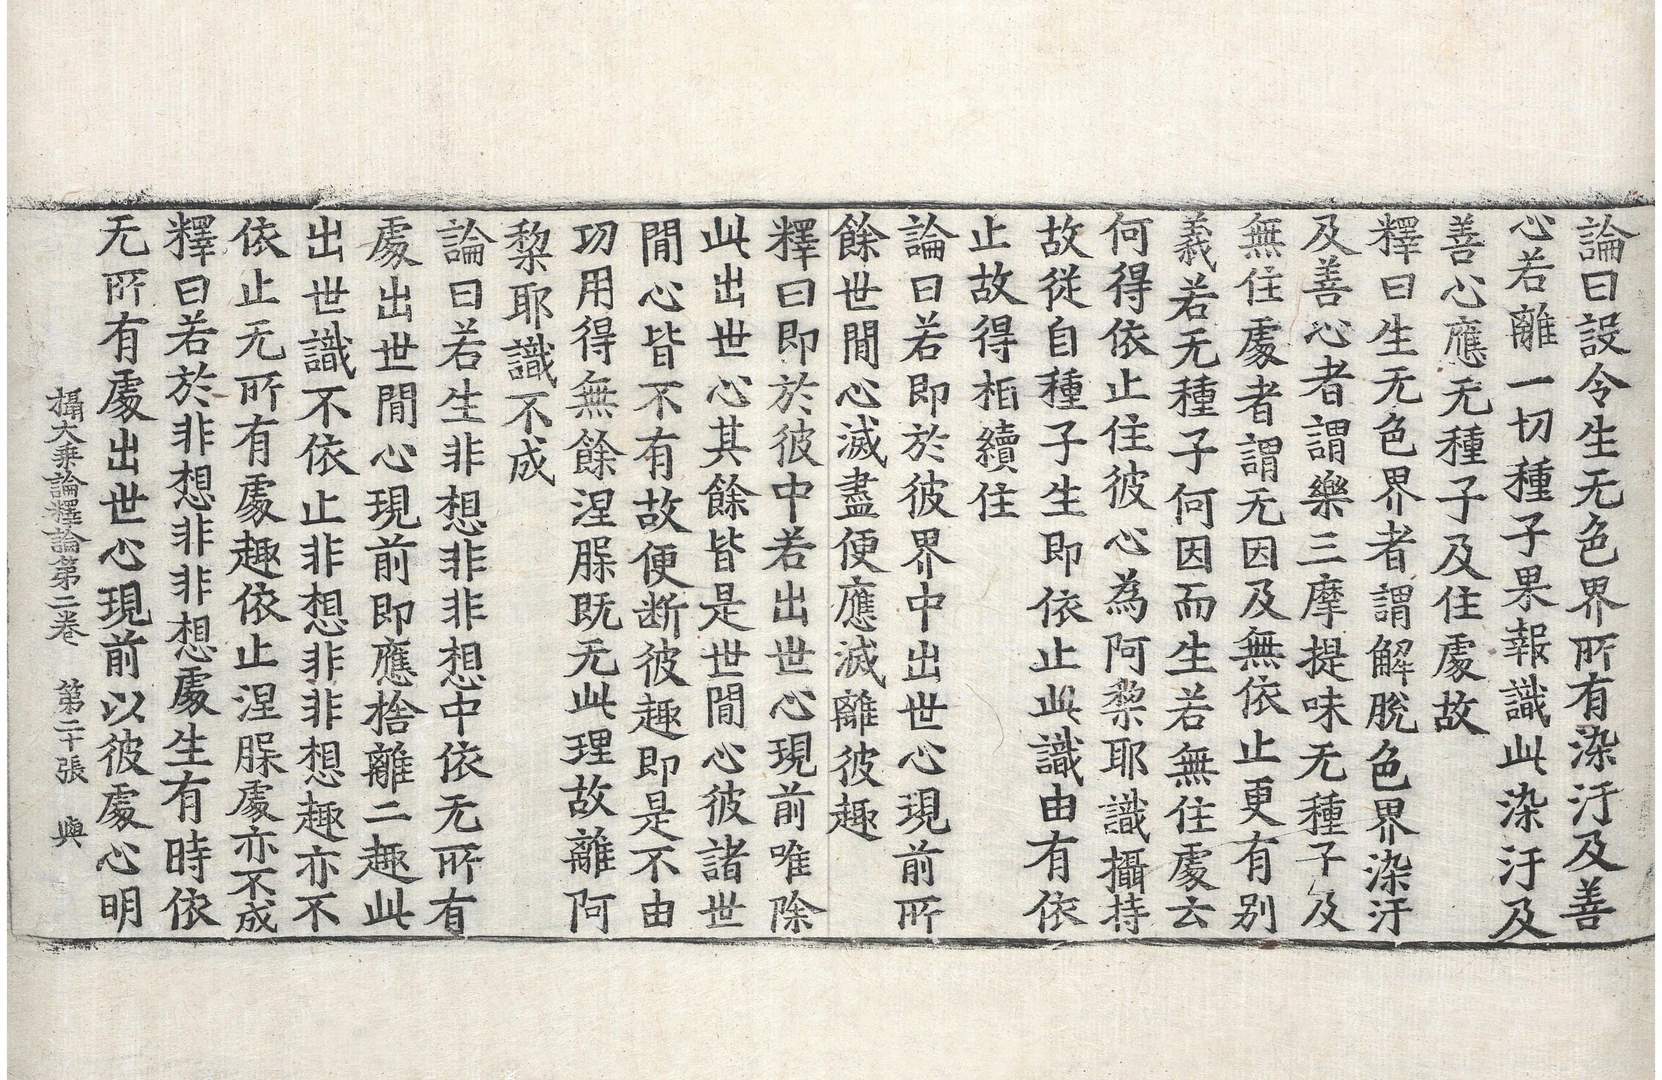 論曰設令生无色界所有染汙及善
心若離一切種子果報識此染汙及
善心應无種子及住處故
釋曰生无色界者謂解脫色界染汙
及善心者謂樂三摩提味无種子及
無住處者謂无因及無依止更有別
義若无種子何因而生若無住處云
何得依止住彼心為阿梨耶識攝持
故從自種子生即依止此識由有依
止故得相續住
論曰若即於彼界中出世心現前所
餘世間心滅盡便應滅離彼趣
釋曰即於彼中若出世心現前唯除
此出世心其餘皆是世間心彼諸世
間心皆不有故便断彼趣即是不由
功用得無餘涅槃既无此理故離阿
梨耶識不成
論曰若生非想非非想中依无所有
處出世間心現前即應捨離二趣此
出世識不依止非想非非想趣亦不
依止无所有處趣依止涅槃處亦不成
釋曰若於非想非非想處生有時依
无所有處出世心現前以彼處心明
攝大乘論釋論第二卷 第二十張 與